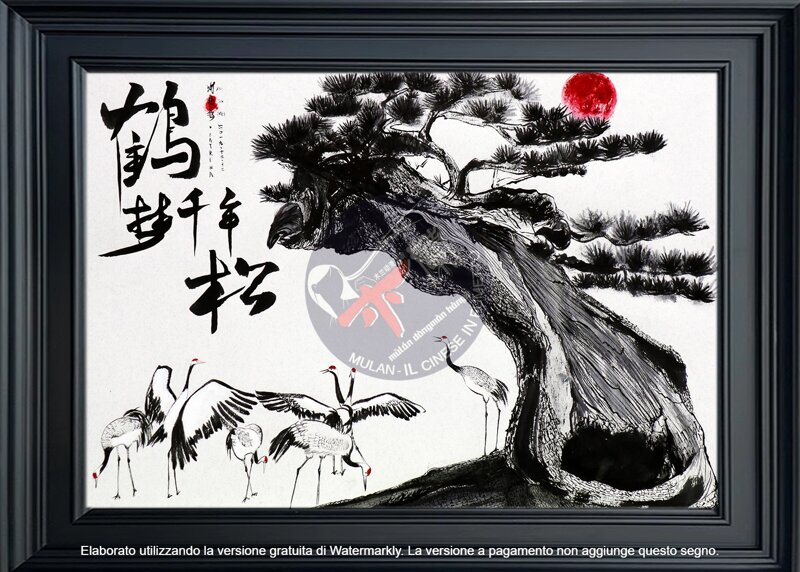 鹤
梦千年
松
mùlán dòngmàn hàn
MULAN - IL CINESE IN F
Elaborato utilizzando la versione gratuita di Watermarkly. La versione a pagamento non aggiunge questo segno.